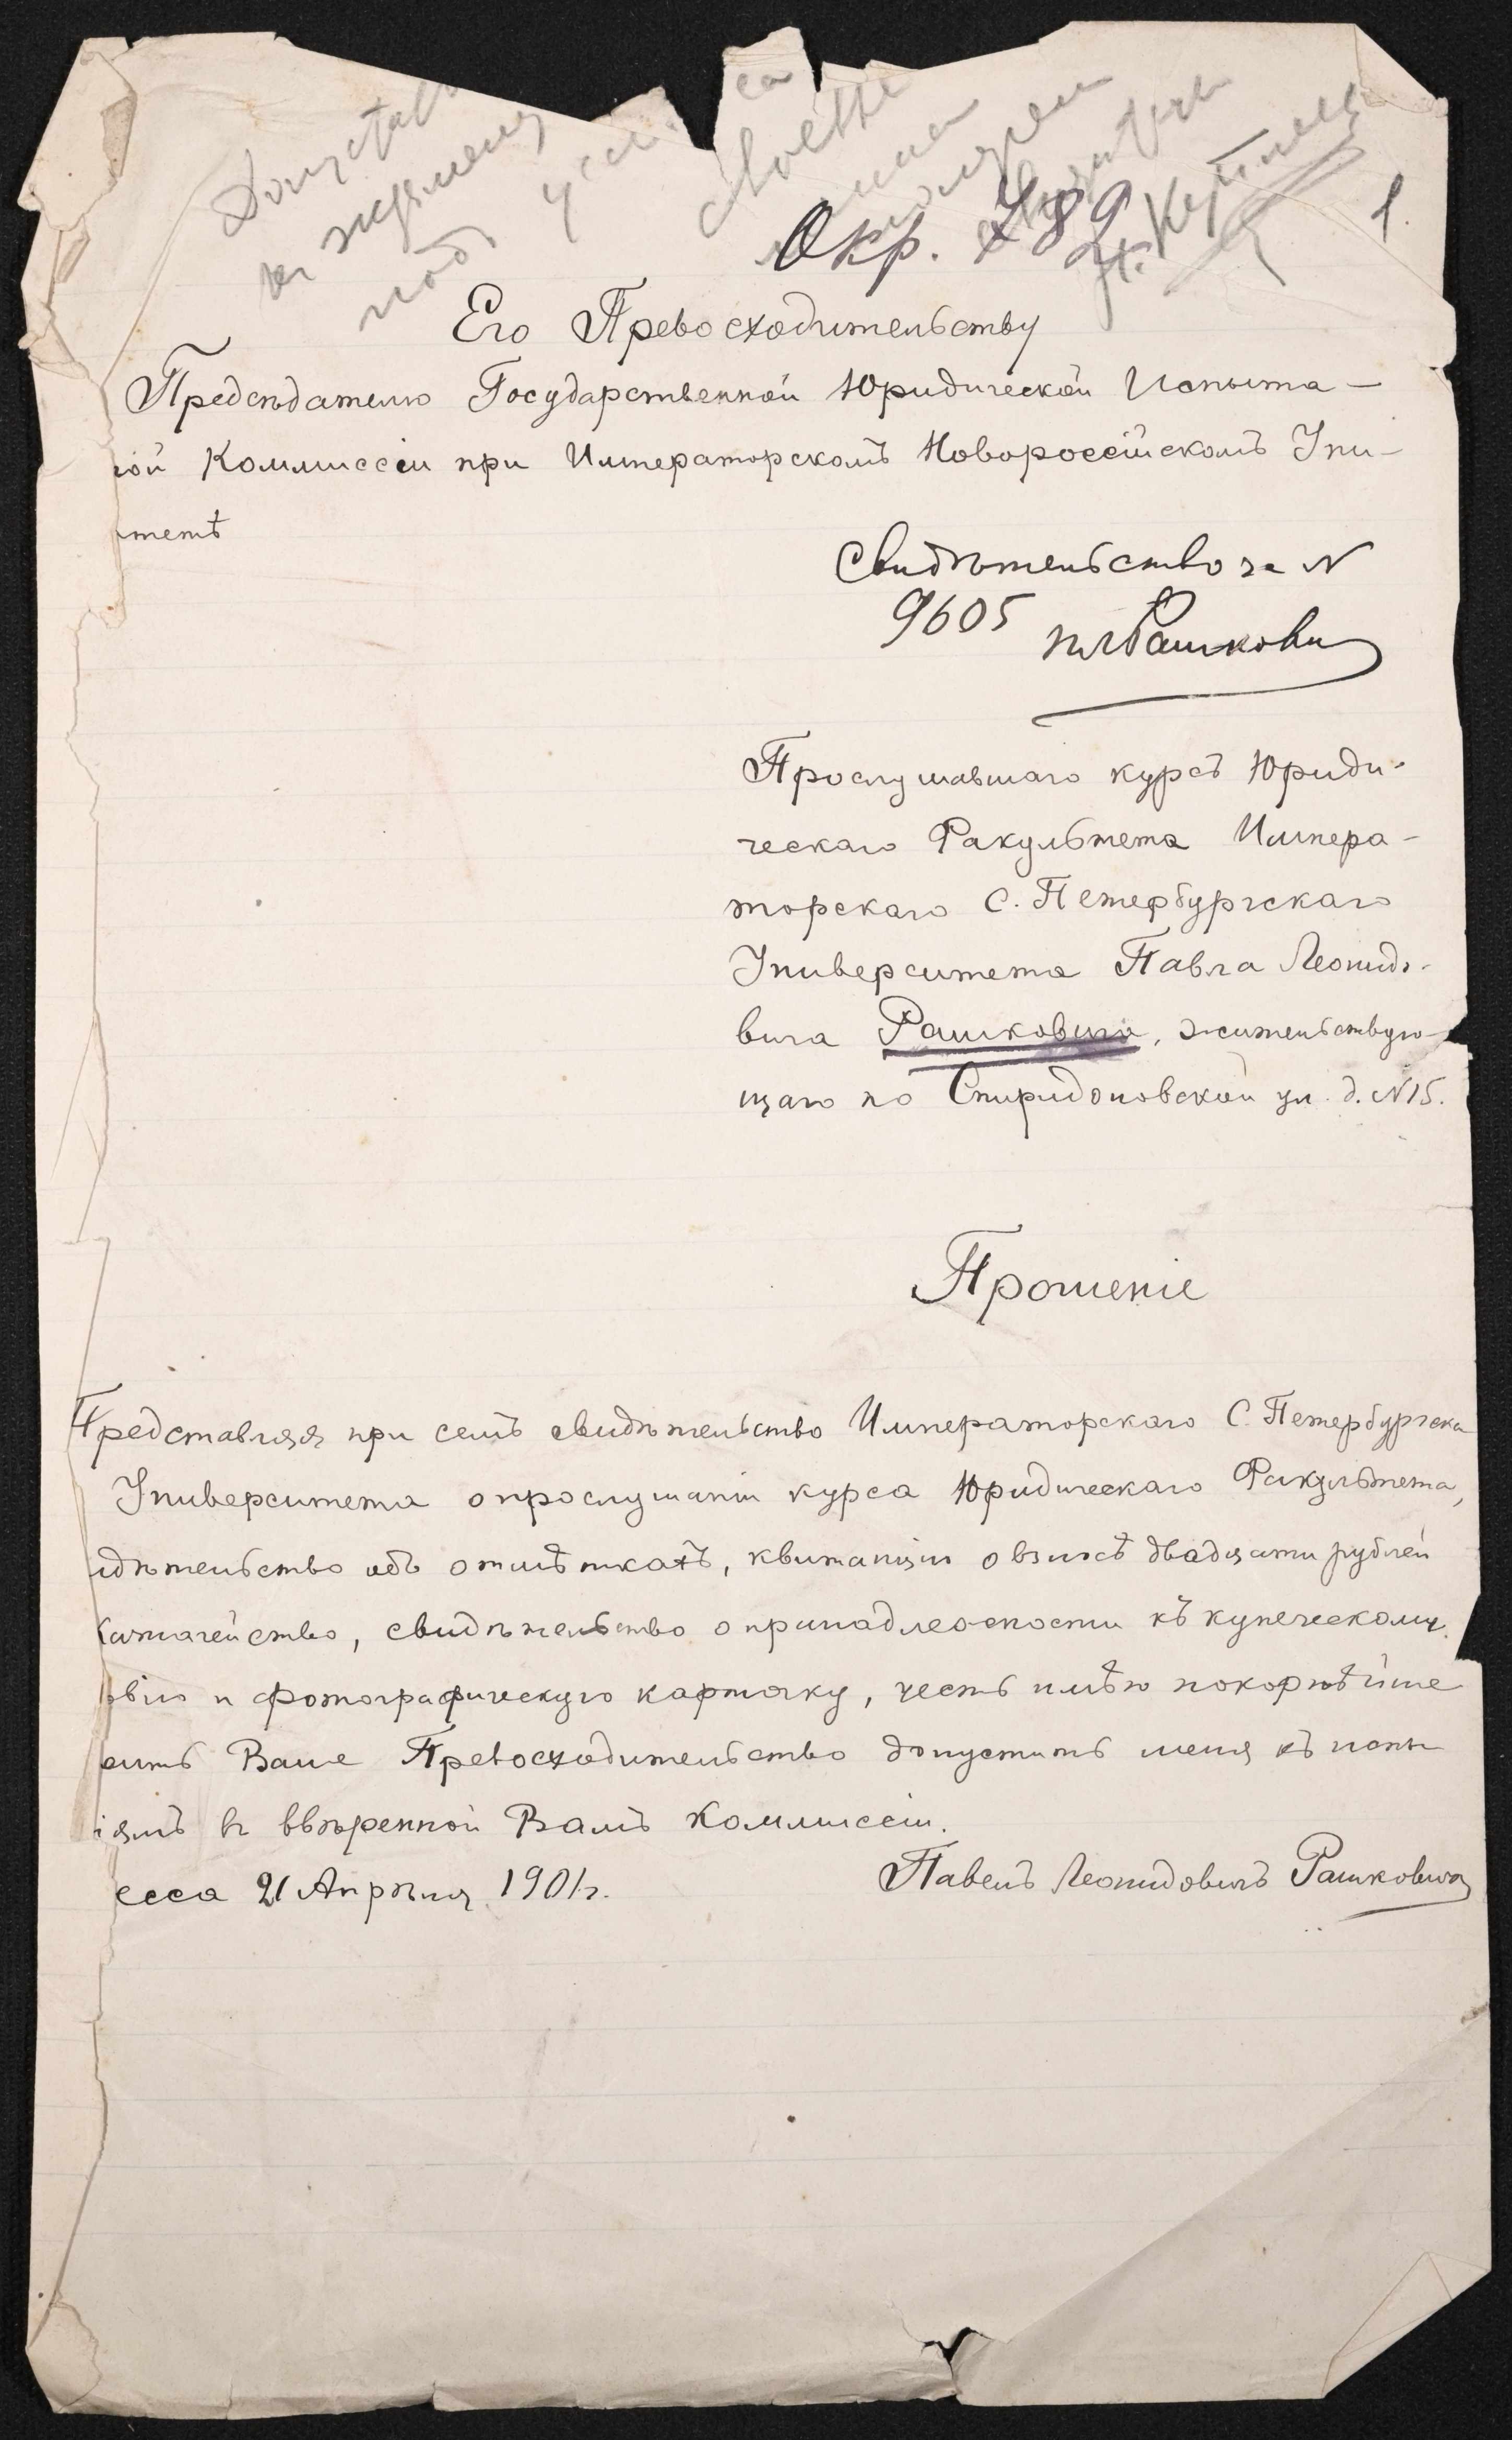 Допустить
къ экзамену
подъ усл.
Окр. 789
1.
Его Превосходительству
Предсѣдателю Государственной Юридической Испыта-
ной Коммиссіи при Императорскомъ Новороссійскомъ Уни-
тетѣ
Свидѣтельство за N
9605 ПЛРашкович
Прослушавшаго курсъ Юриди-
ческаго Факультета Импера-
торскаго С. Петербургскаго
Университета Павла Леонидо-
вича Рашковича, жительствую-
щаго по Спиридоновской ул. д. N 15.
Прошеніе
Представляя при семъ свидѣтельство Императорскаго С. Петербургска
Университета о прослушаніи курса Юридическаго Факультета,
идѣтельство объ отмѣткахъ, квитанцію о взносѣ двадцати рублей
Казначейство, свидѣтельство о принадлежности къ купеческому
овію и фотографическую карточку, честь имѣю покорнѣйше
осить Ваше Превосходительство допустить меня къ испы
іямъ въ ввѣренной Вамъ Коммиссіи.
есса 21 Апрѣля 1901 г. Павелъ Леонидовичъ Рашкович